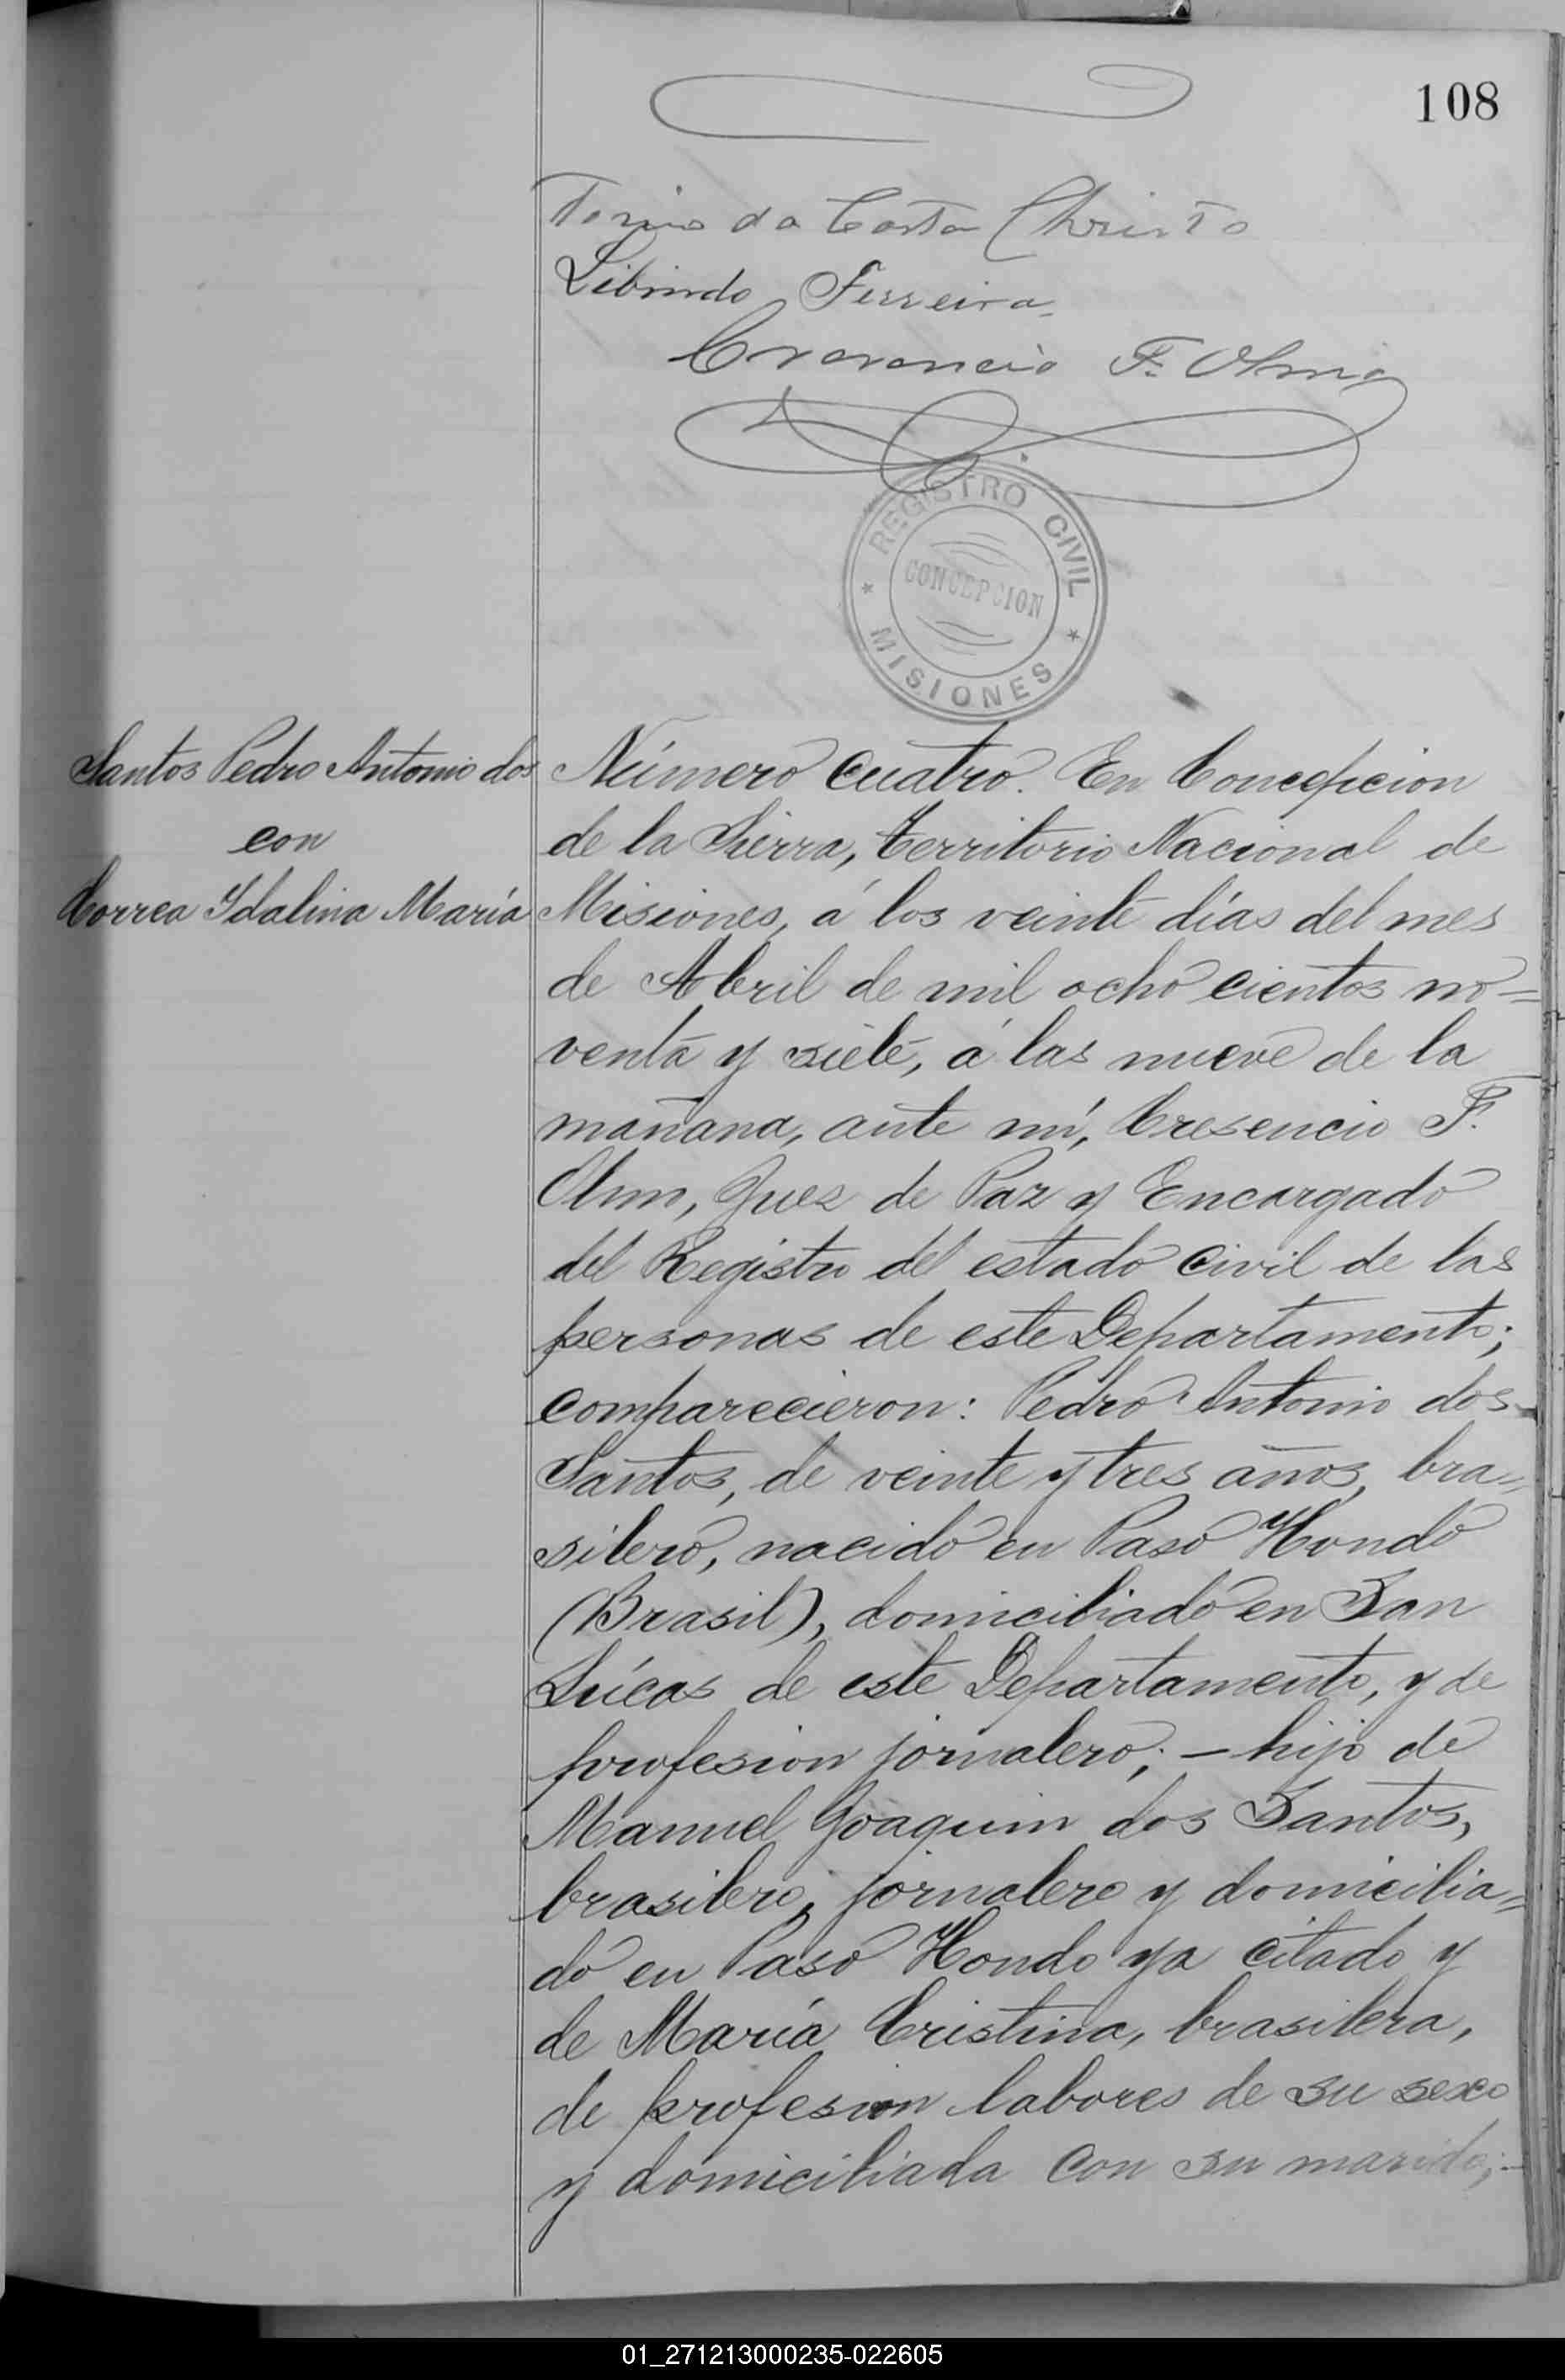 108
da Costa Christo
Libindo Ferreira
F. Olmo
REGISTRO CIVIL
CONCEPCION
MISIONES
Santos Pedro Antonio dos
con
Correa Idalina María
Número cuatro. En Concepcion
de la Sierra, territorio Nacional de
Misiones, á los veinte días del mes
de Abril de mil ocho cientos no=
venta y siete, á las nueve de la
mañana, ante mí, Cresencio F.
Olmo, Juez de Paz y Encargado
del Registro del estado civil de las
personas de este Departamento;
comparecieron: Pedro Antonio dos
Santos, de veinte y tres años, bra=
silero, nacido en Paso Hondo
(Brasil), domiciliado en San
Lúcas de este Departamento, y de
profesion jornalero; — hijo de
Manuel Joaquin dos Santos,
brasilero, jornalero y domicilia=
do en Paso Hondo ya citado y
de María Cristina, brasilera,
de profesion labores de su sexo
y domiciliada con su marido;-
01_271213000235-022605